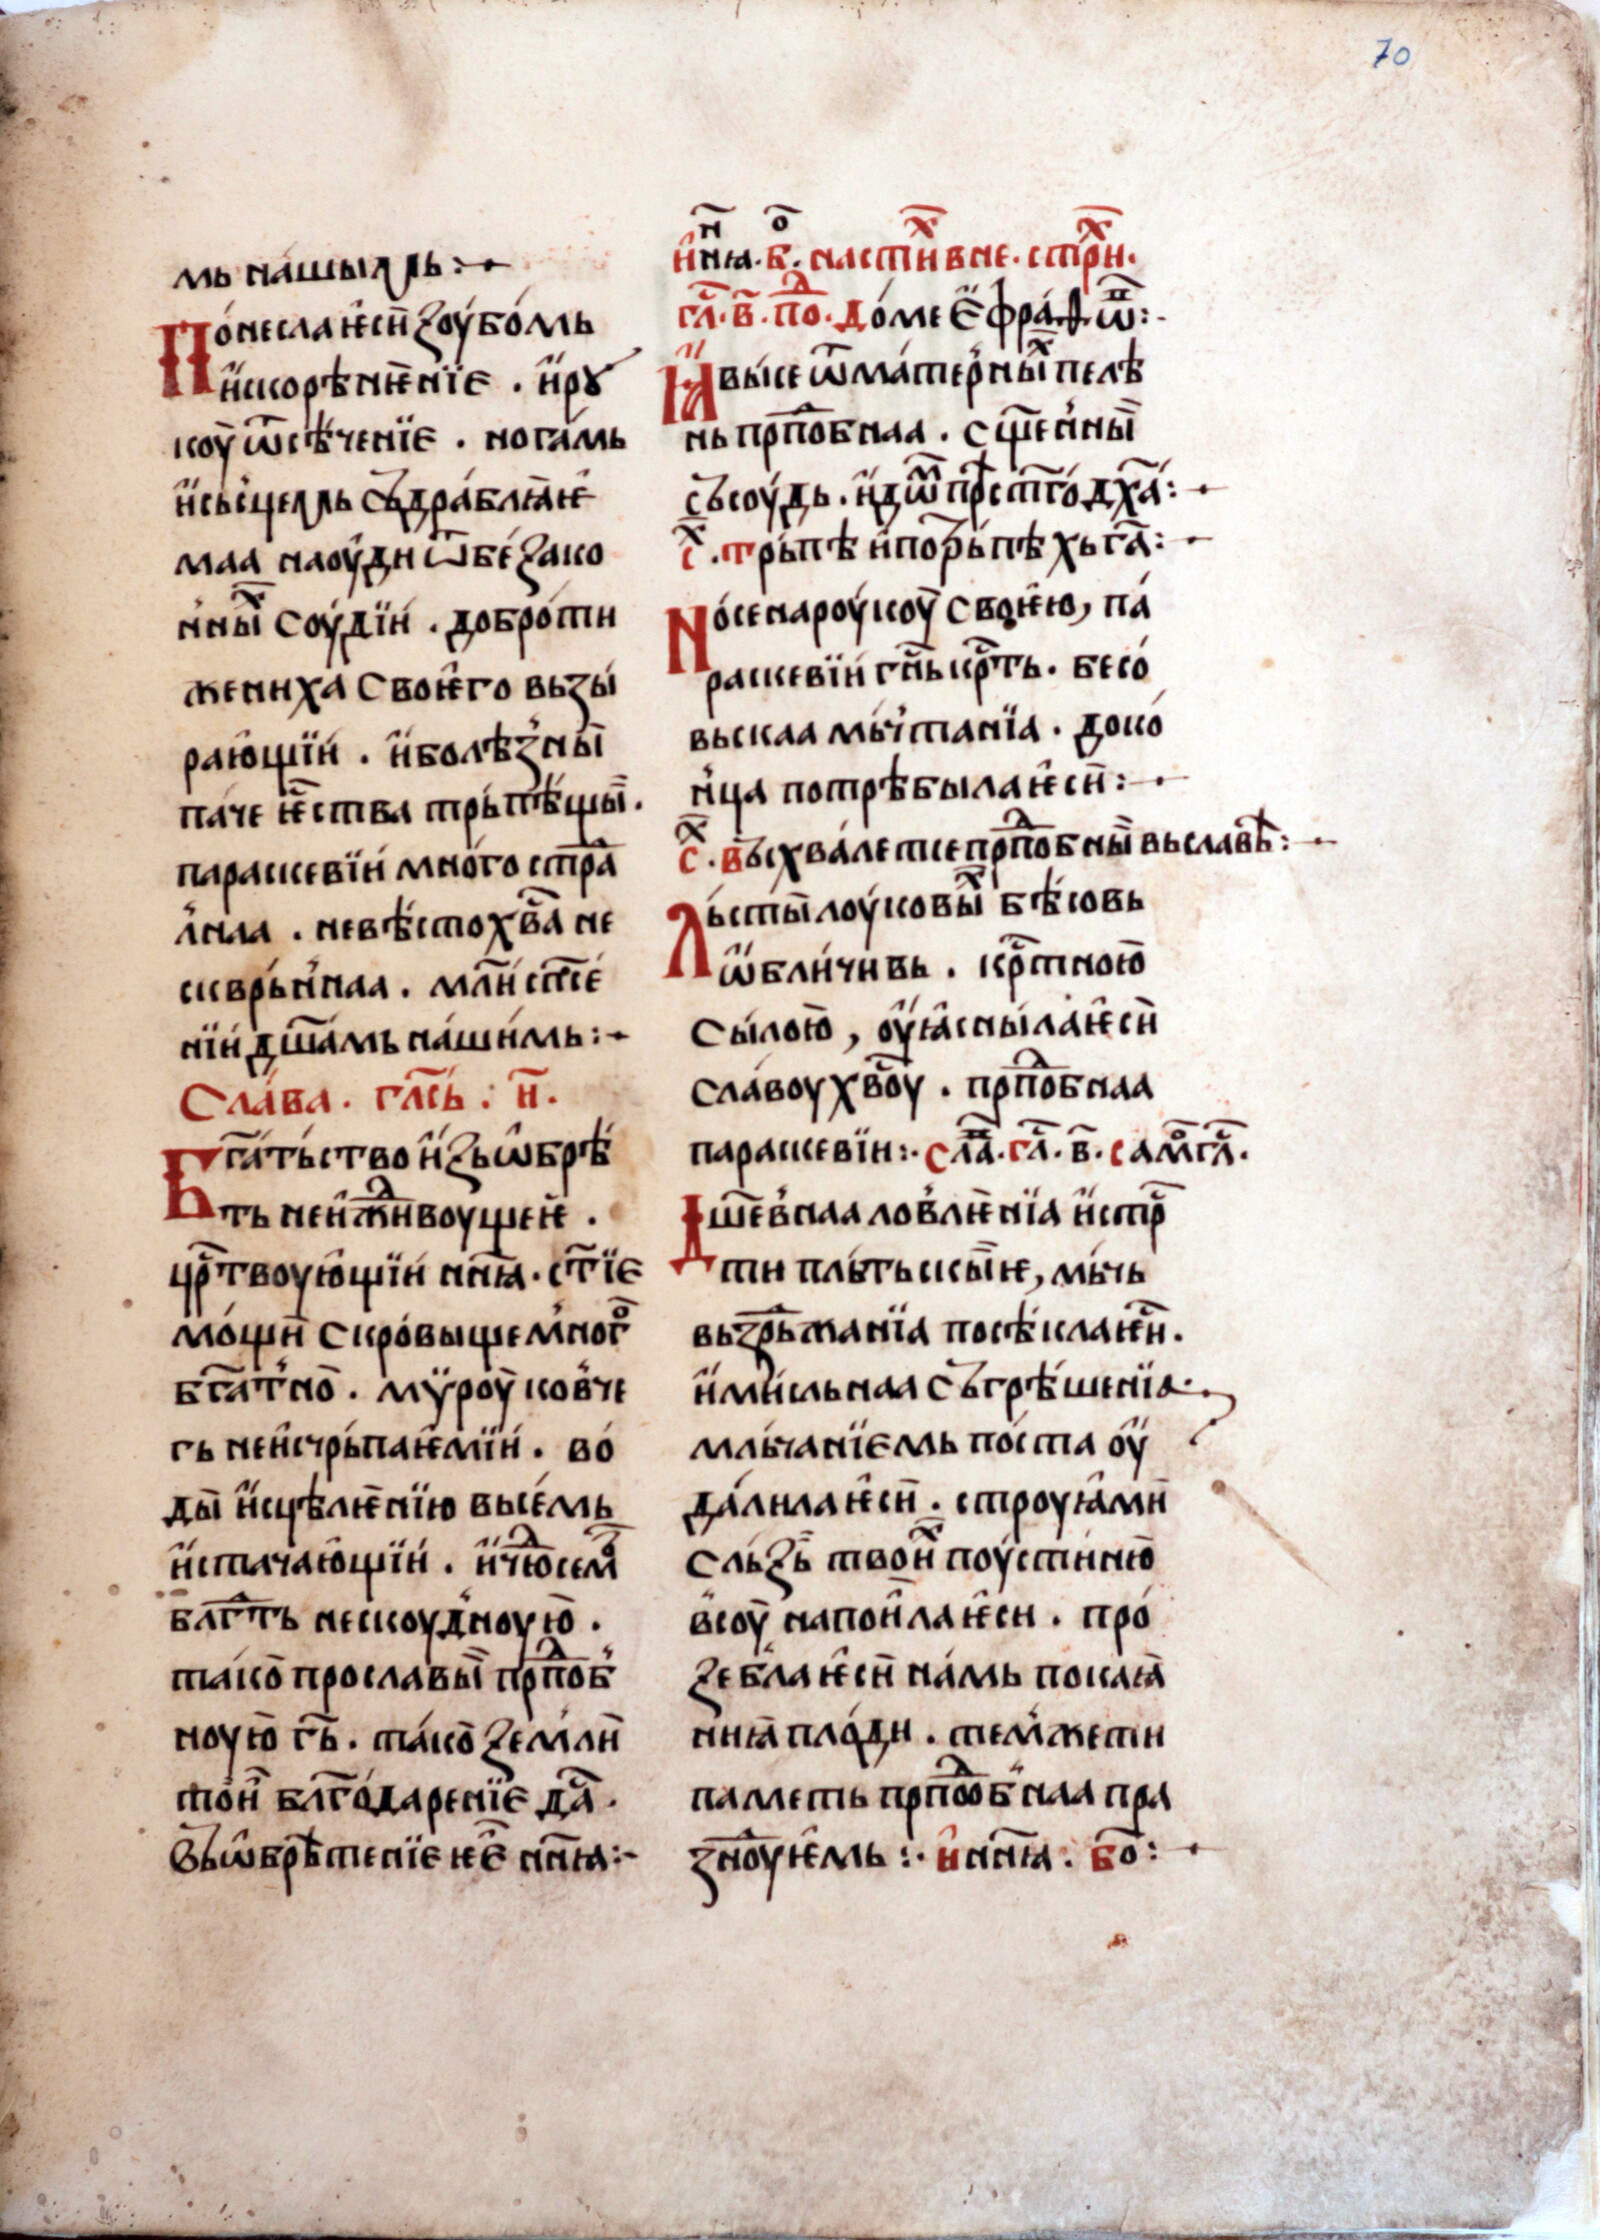 70
мь на́шыꙗ҆ дь :·
По́несла ѥ҆си̏ зоу́бо́мь
и҆скорѣнѥ́нїѥ . и҆ рꙋ
коу̏ ѿсѣ́ченїѥ . нога́мь
и҆сьсцелꙗ ль съдра́блꙗѥ
маа на оу́ди ѿ бе́зако
н̾ны̏ⷯ соу́дїи́ . добро́ти
жениха своѥ҆го вьзы́
раю҆щїи́ . и҆ болѣ́зны̏
па́че ѥ҆ⷭ҇ства трьпѣ́щы̏.
параскевїи́ мно́гостра
л̾наа . невѣ́сто х҃ва не
сквры́н̾наа . мл҃и спⷭ҇е́
нїи́ дш҃а́мь на́шимь :·
Сла́ва . гла́сь : и҃ .
Бг҃а́тьство и҆зьѡ҆брѣ́
ть неи̏ж̾диⷣвоущеѥ .
цр҃ⷭ҇твоую҆щїи́ нн҃ꙗ . ст҃їѥ
мо́щи̏ скро́выще мно́гоⷢ
бг҃а́т̾но̏ . мѵ̈роу̏ ковче
гь неи҆счрьпаѥ҆мїи́ . во́
ды̏ и҆сцѣлѥ́нїю вьсе́мь
и҆стача́ю҆щїи́ . и҆ чюⷣсемⷭ
бл҃гⷣть нескоу́д̾ноую̏ .
та́ко̏ прославы̏ прⷣпоб̾
ноую̏ г҃ь . та́ко̏ земли̏
твои̏ бл҃го́даренїѥ да̑ .
Въ ѡ҆брѣ́тенїѥ ѥ҆ѥ̏ нн҃ꙗ :·
и҆ нн҃ꙗ . б҃ⷪ . на стⷯи́вне . стрⷯи .
гл҃ . в҃ . поⷣ . до́ме ѥ҆фра́ѳ .
Ꙗ҆вы́се ѿ ма́тер̾ны̏ⷯ пелѣ
нь прⷣпоб̾наа . сщ҃ен̾ны̏
съсоу́дь . и҆ до́мⷨ прⷭ҇т҃го дх҃а́ :·
сⷯ . Трьпѣ и҆ по́трьпѣхь г҃а :·
Но́се на роу́коу̏ своѥ҆ю, па́
раскевїи́ гⷭ҇нь крⷭ҇ть . бесо́
вьскаа мьч̾танїа . до ко́
н̾ца потрѣбыла ѥ҆си̏ :·
сⷯ . Вьсхва́летсе прⷣпоб̾ны̏ вь славѣⷯ :·
Льсты̏ лоу́ковы̏ⷯ бѣ́совь
ѡ҆бли́чивь . крⷭ҇тною̏
сы́лою̏, оу҆ꙗ҆сныла ѥ҆си̏
сла́воу хв҃оу . прⷣпоб̾наа
параскевїи :· слаⷡ . глⷭ . в҃ . самоⷢлⷭ .
Дш҃ев̾наа лов̾лѥ́нїа и҆ стрⷭ҇
ти пль́тьскы̏ѥ, мь́чь
вьздрьжанїа посѣ́кла ѥ҆си̏ .
и҆ ми́сльнаа съгрѣ́шенїа .
мль́чанїѥмь по́ста оу҆
да́лила ѥ҆си̏ . строуꙗ҆ми
сль́зь̏ твои̏ⷯ поу́сти́ню̏
в̾соу̏ напои̏ла ѥ҆си . про́
зеб̾ла ѥ҆си̏ на́мь покаꙗ
ннꙗ пло́ди . тем̾же ти
паметь прⷣпоб̾наа пра
зноуѥ҆мь :· и҆ нн҃ꙗ . бо̑ :·